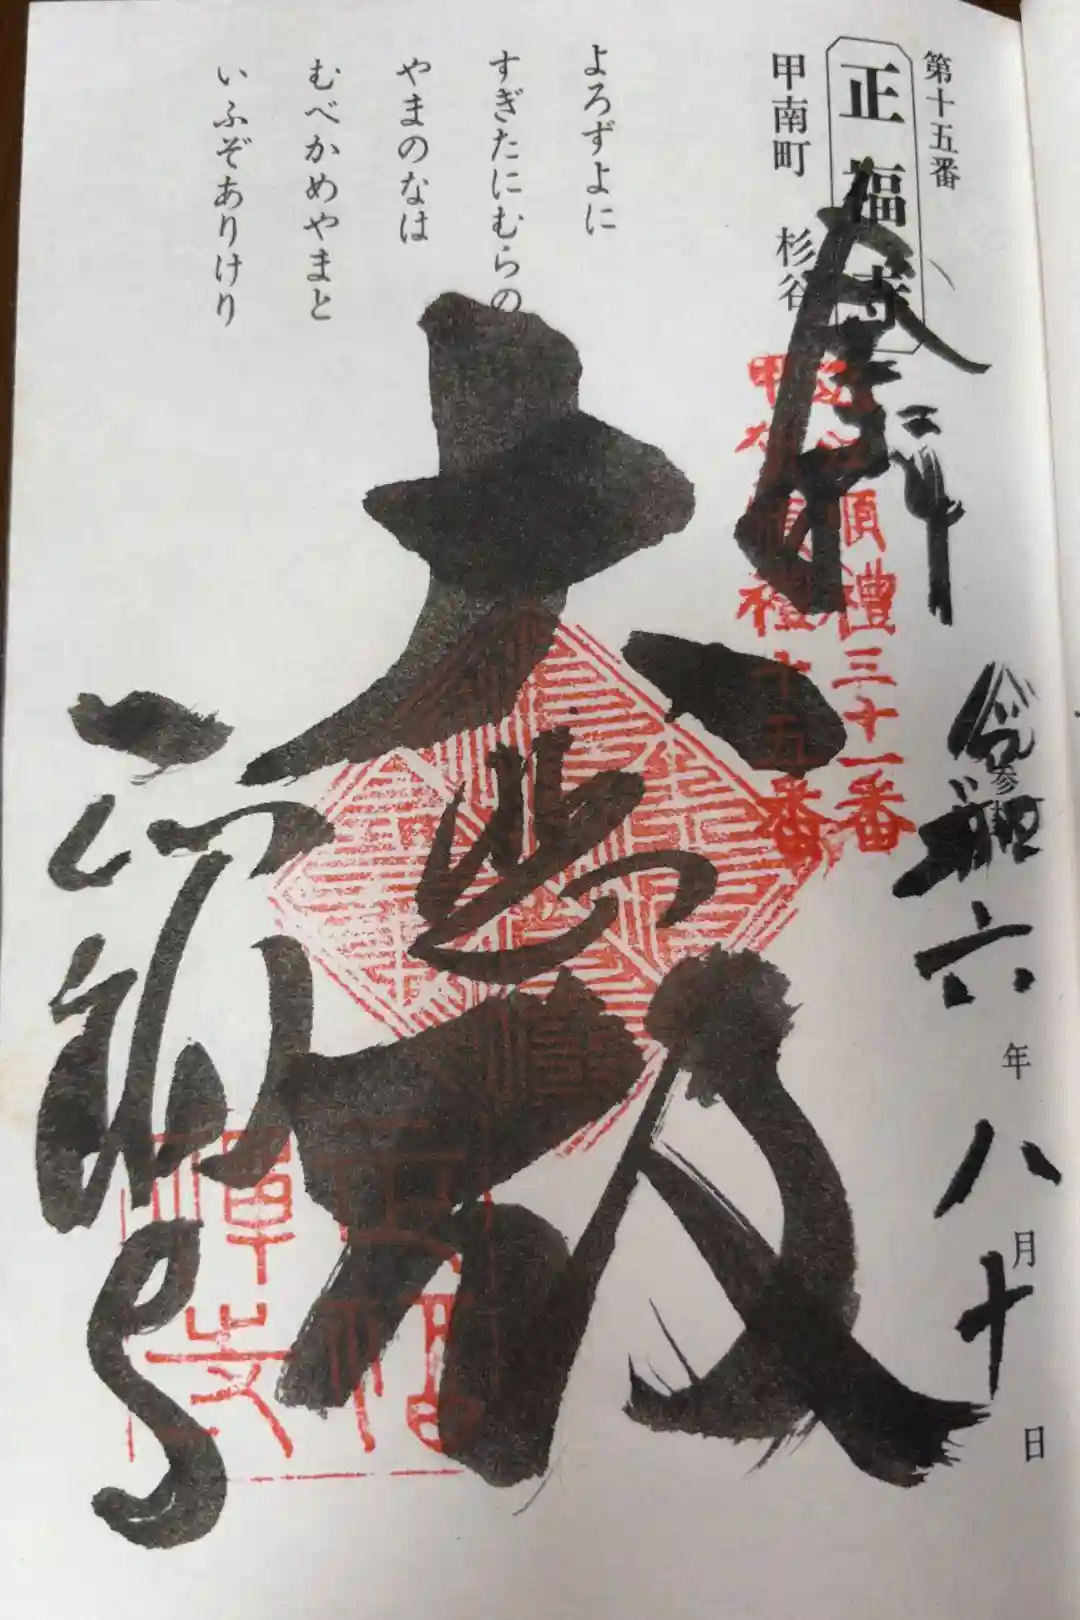 第十五番
正福寺
甲南町 杉谷
よろずよに
すぎたにむらの
やまのなは
むべかめやまと
いふぞありけり
奉拝
近江西国順禮三十一番
甲賀順禮十五番
令和六年八月十日
大悲殿
正福寺